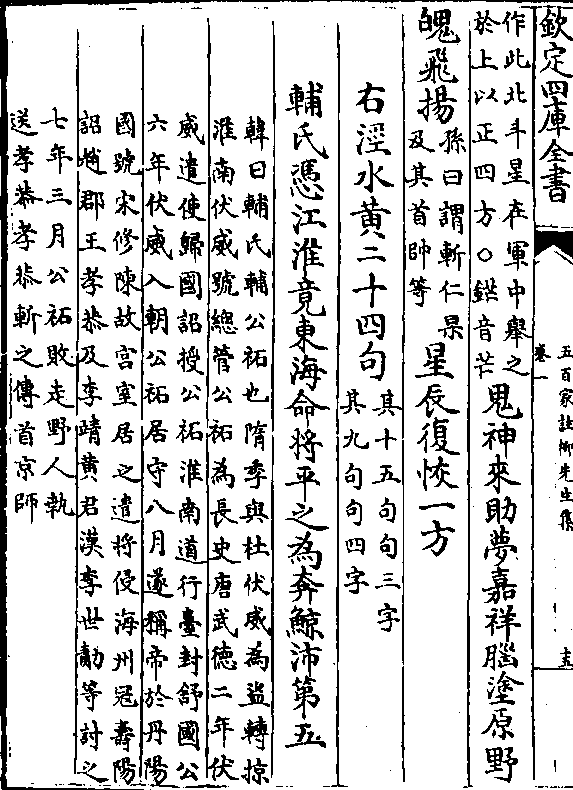 欽定四庫全書
五百家註柳先生集
卷一
十五
作此北斗星在軍中舉之
於上以正四方○鋩音芒
鬼神來助夢嘉祥腦塗原野
魄飛揚
孫曰謂斬仁杲
及其首帥等
星辰復恢一方
右涇水黃二十四句
其十五句句三字
其九句句四字
輔氏憑江淮竟東海命將平之為奔鯨沛第五
韓曰輔氏輔公祏也隋季與杜伏威為盜轉掠
淮南伏威號總管公祏為長史唐武德二年伏
威遣使歸國詔授公祏淮南道行臺封舒國公
六年伏威入朝公祏居守八月遂稱帝於丹陽
國號宋修陳故宫室居之遣將侵海州冦壽陽
詔趙郡王孝恭及李靖黄君漢李世勣等討之
七年三月公祏敗走野人執
送孝恭孝恭斬之傳首京師